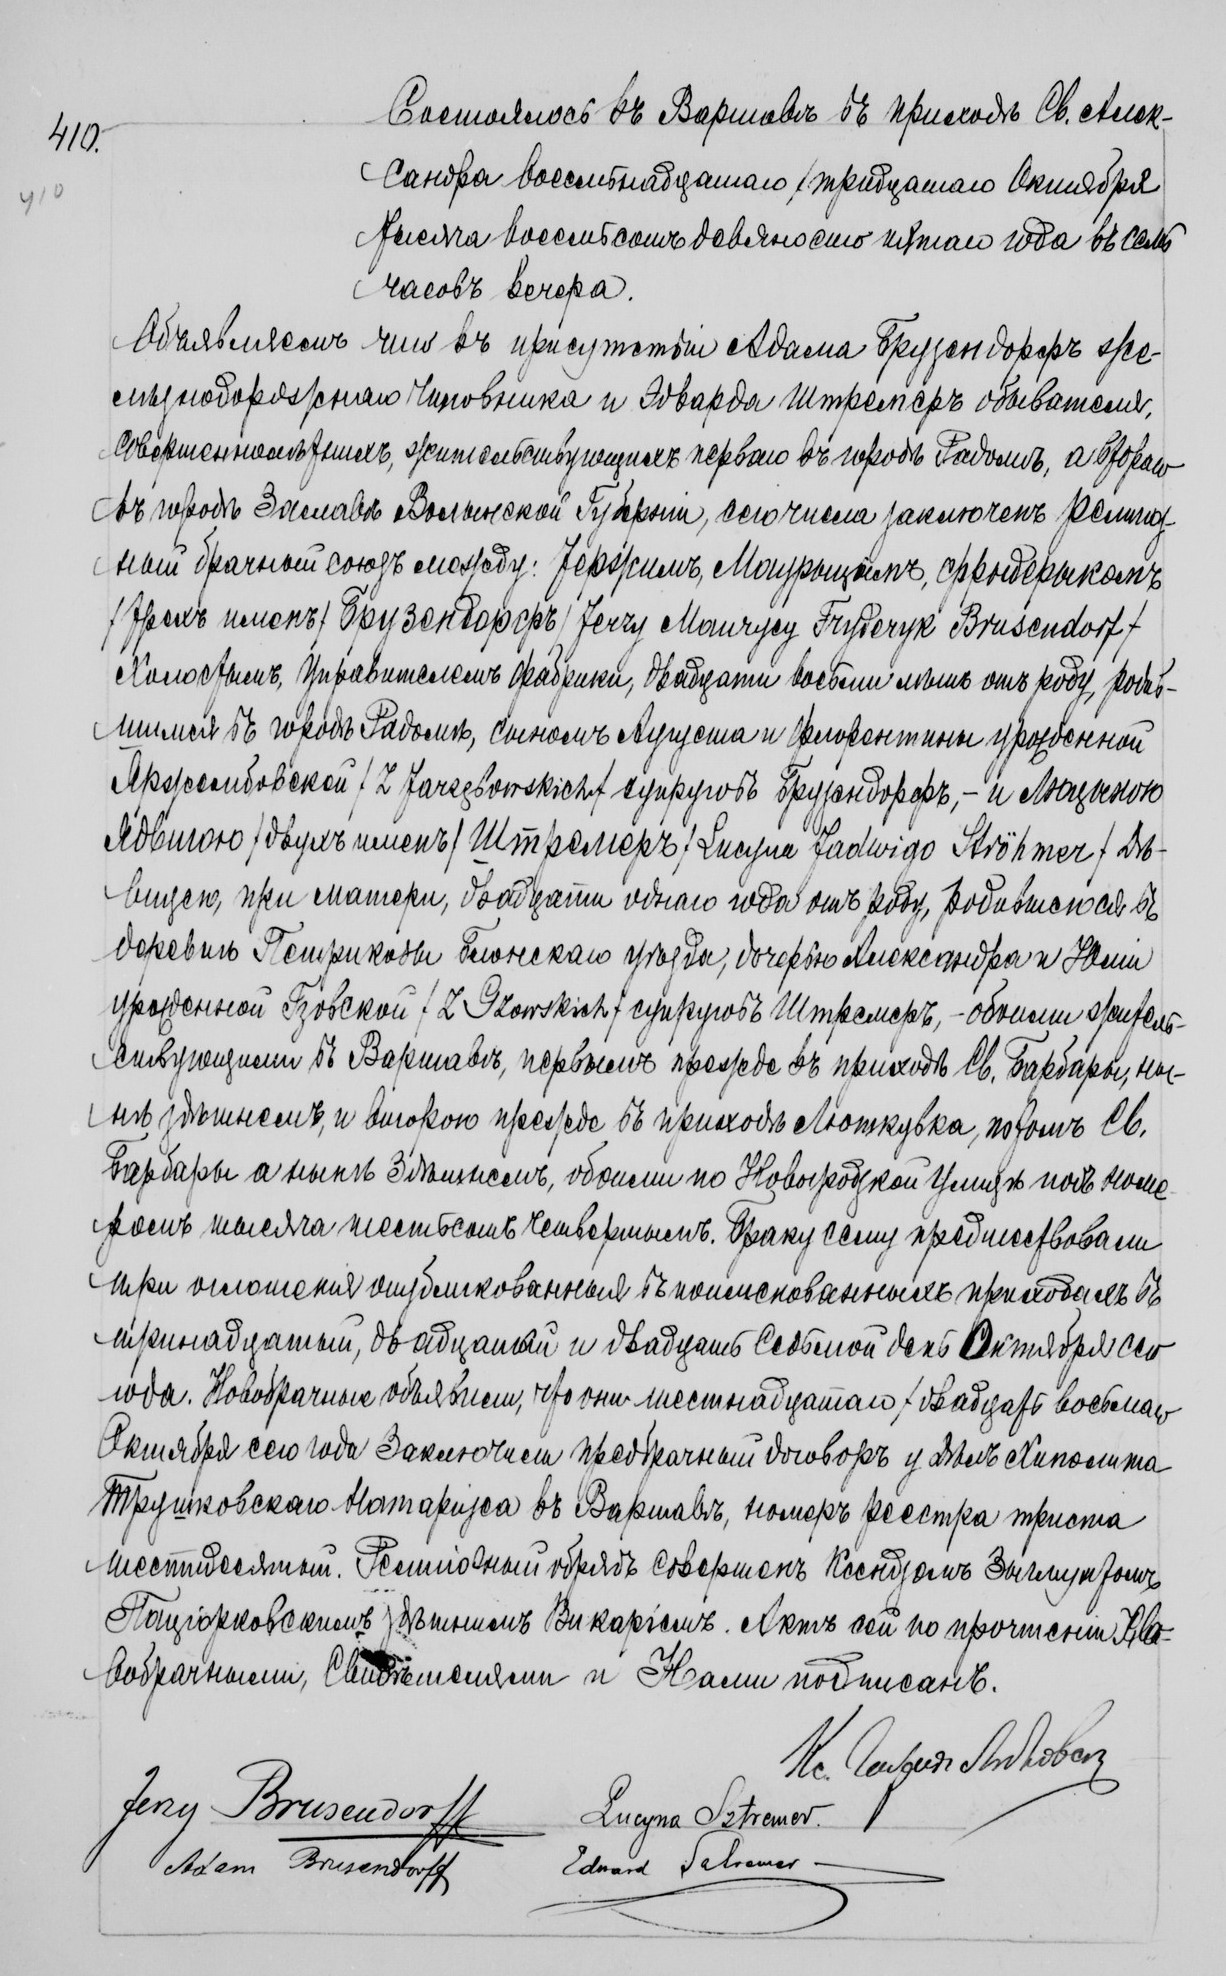 410.
410
Состоялось въ Варшавѣ въ приходѣ Св. Алек-
сандра восемьнадцатаго /тридцатаго Октября
тысяча восемьсотъ девяносто пятаго года въ семь
часовъ вечера.
Объявляемъ что въ присутствіи Адама Брузендорфъ же-
лѣзнодорожнаго чиновника и Эдварда Штремеръ обывателя,
совершеннолѣтнихъ, жительствующихъ перваго въ городѣ Радомѣ, а втораго
въ городѣ Заславѣ Волынской Губерніи, сего числа заключенъ религіоз-
ный брачный союзъ между: Іержимъ, Маурыцымъ, Фрыдерыкомъ
/трехъ именъ/ Брузендорфъ / Jerzy Maurycy Fryderyk Brusendorf /
холостымъ, Управителемъ фабрики, двадцати восьми лѣтъ отъ роду, родив-
шимся въ городѣ Радомѣ, сыномъ Августа и Флорентины урожденной
Яржембовской / Z Jarzębowskich / супруговъ Брузендорфъ, – и Люцыною
Ядвигою /двухъ именъ/ Штремеръ / Lucyna Jadwiga Ströhmer / дѣ-
вицею, при матери, двадцати одного года отъ роду, родившеюся въ
деревнѣ Петрикозы Блонскаго уѣзда, дочерью Александра и Юліи
урожденной Гзовской / Z Gzowskich / супруговъ Штремеръ, – обоими житель-
ствующими въ Варшавѣ, первымъ прежде въ приходѣ Св. Барбары, ны-
нѣ здѣшнемъ, и второю прежде въ приходѣ Люткувка, потомъ Св.
Барбары а нынѣ здѣшнемъ, обоими по Новогродской улицѣ подъ номе-
ромъ тысяча шестьсотъ четвертымъ. Браку сему предшествовали
три оглашенія опубликованныя въ поименованныхъ приходахъ въ
тринадцатый, двадцатый и двадцать седьмой день Октября сего
года. Новобрачные объявили, что они шестнадцатаго / двадцать восьмаго
Октября сего года заключили предбрачный договоръ у дѣлъ Хиполита
Трушковскаго Нотаріуса въ Варшавѣ, номеръ реестра триста
шестидесятый. Религіозный обрядъ совершенъ Ксендзомъ Зыгмунтомъ
Пацiорковскимъ здѣшнимъ Викаріемъ. Актъ сей по прочтеніи Но-
вобрачными, Свидѣтелями и Нами подписанъ.
Кс.
Jerzy Brusendorff
Lucyna Sztremer.
Adam Brusendorff
Edward Sztremer